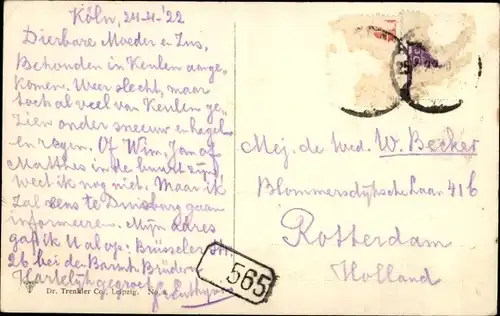 Köln, 24-4-'22
Dierbare Moeder en Zus,
Behouden in Keulen aange-
komen. Weer slecht, maar
toch al veel van Keulen ge-
zien onder sneeuw en hagel
en regen. Of Wim, Jan of
Matthes in de buurt zijn
weet ik nog niet. Maar ik
zal eens te Duisburg gaan
informeeren. Mijn adres
gaf ik U al op: Brüsseler str.
26 bei de Barmh. Brüder
Hartelijk gegroet
Mej. de Wed. W. Becker
Blommersdijksche Laan 41b
Rotterdam
Holland
565
Dr. Trenkler Co., Leipzig.